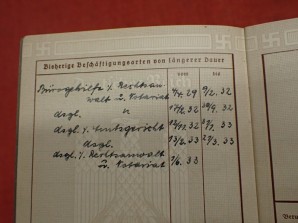 Bisherige Beschäftigungsarten von längerer Dauer
vom bis
Bürogehilfe b. Rechtsan-
walt u. Notariat 4.29 9/2. 32
dsgl. " 17/2. 32 30/9. 32
dsgl. b. Amtsgericht 33
dsgl. 13/2. 33 27/3. 33
dsgl. b. Rechtsanwalt
u. Notariat 1/6. 33